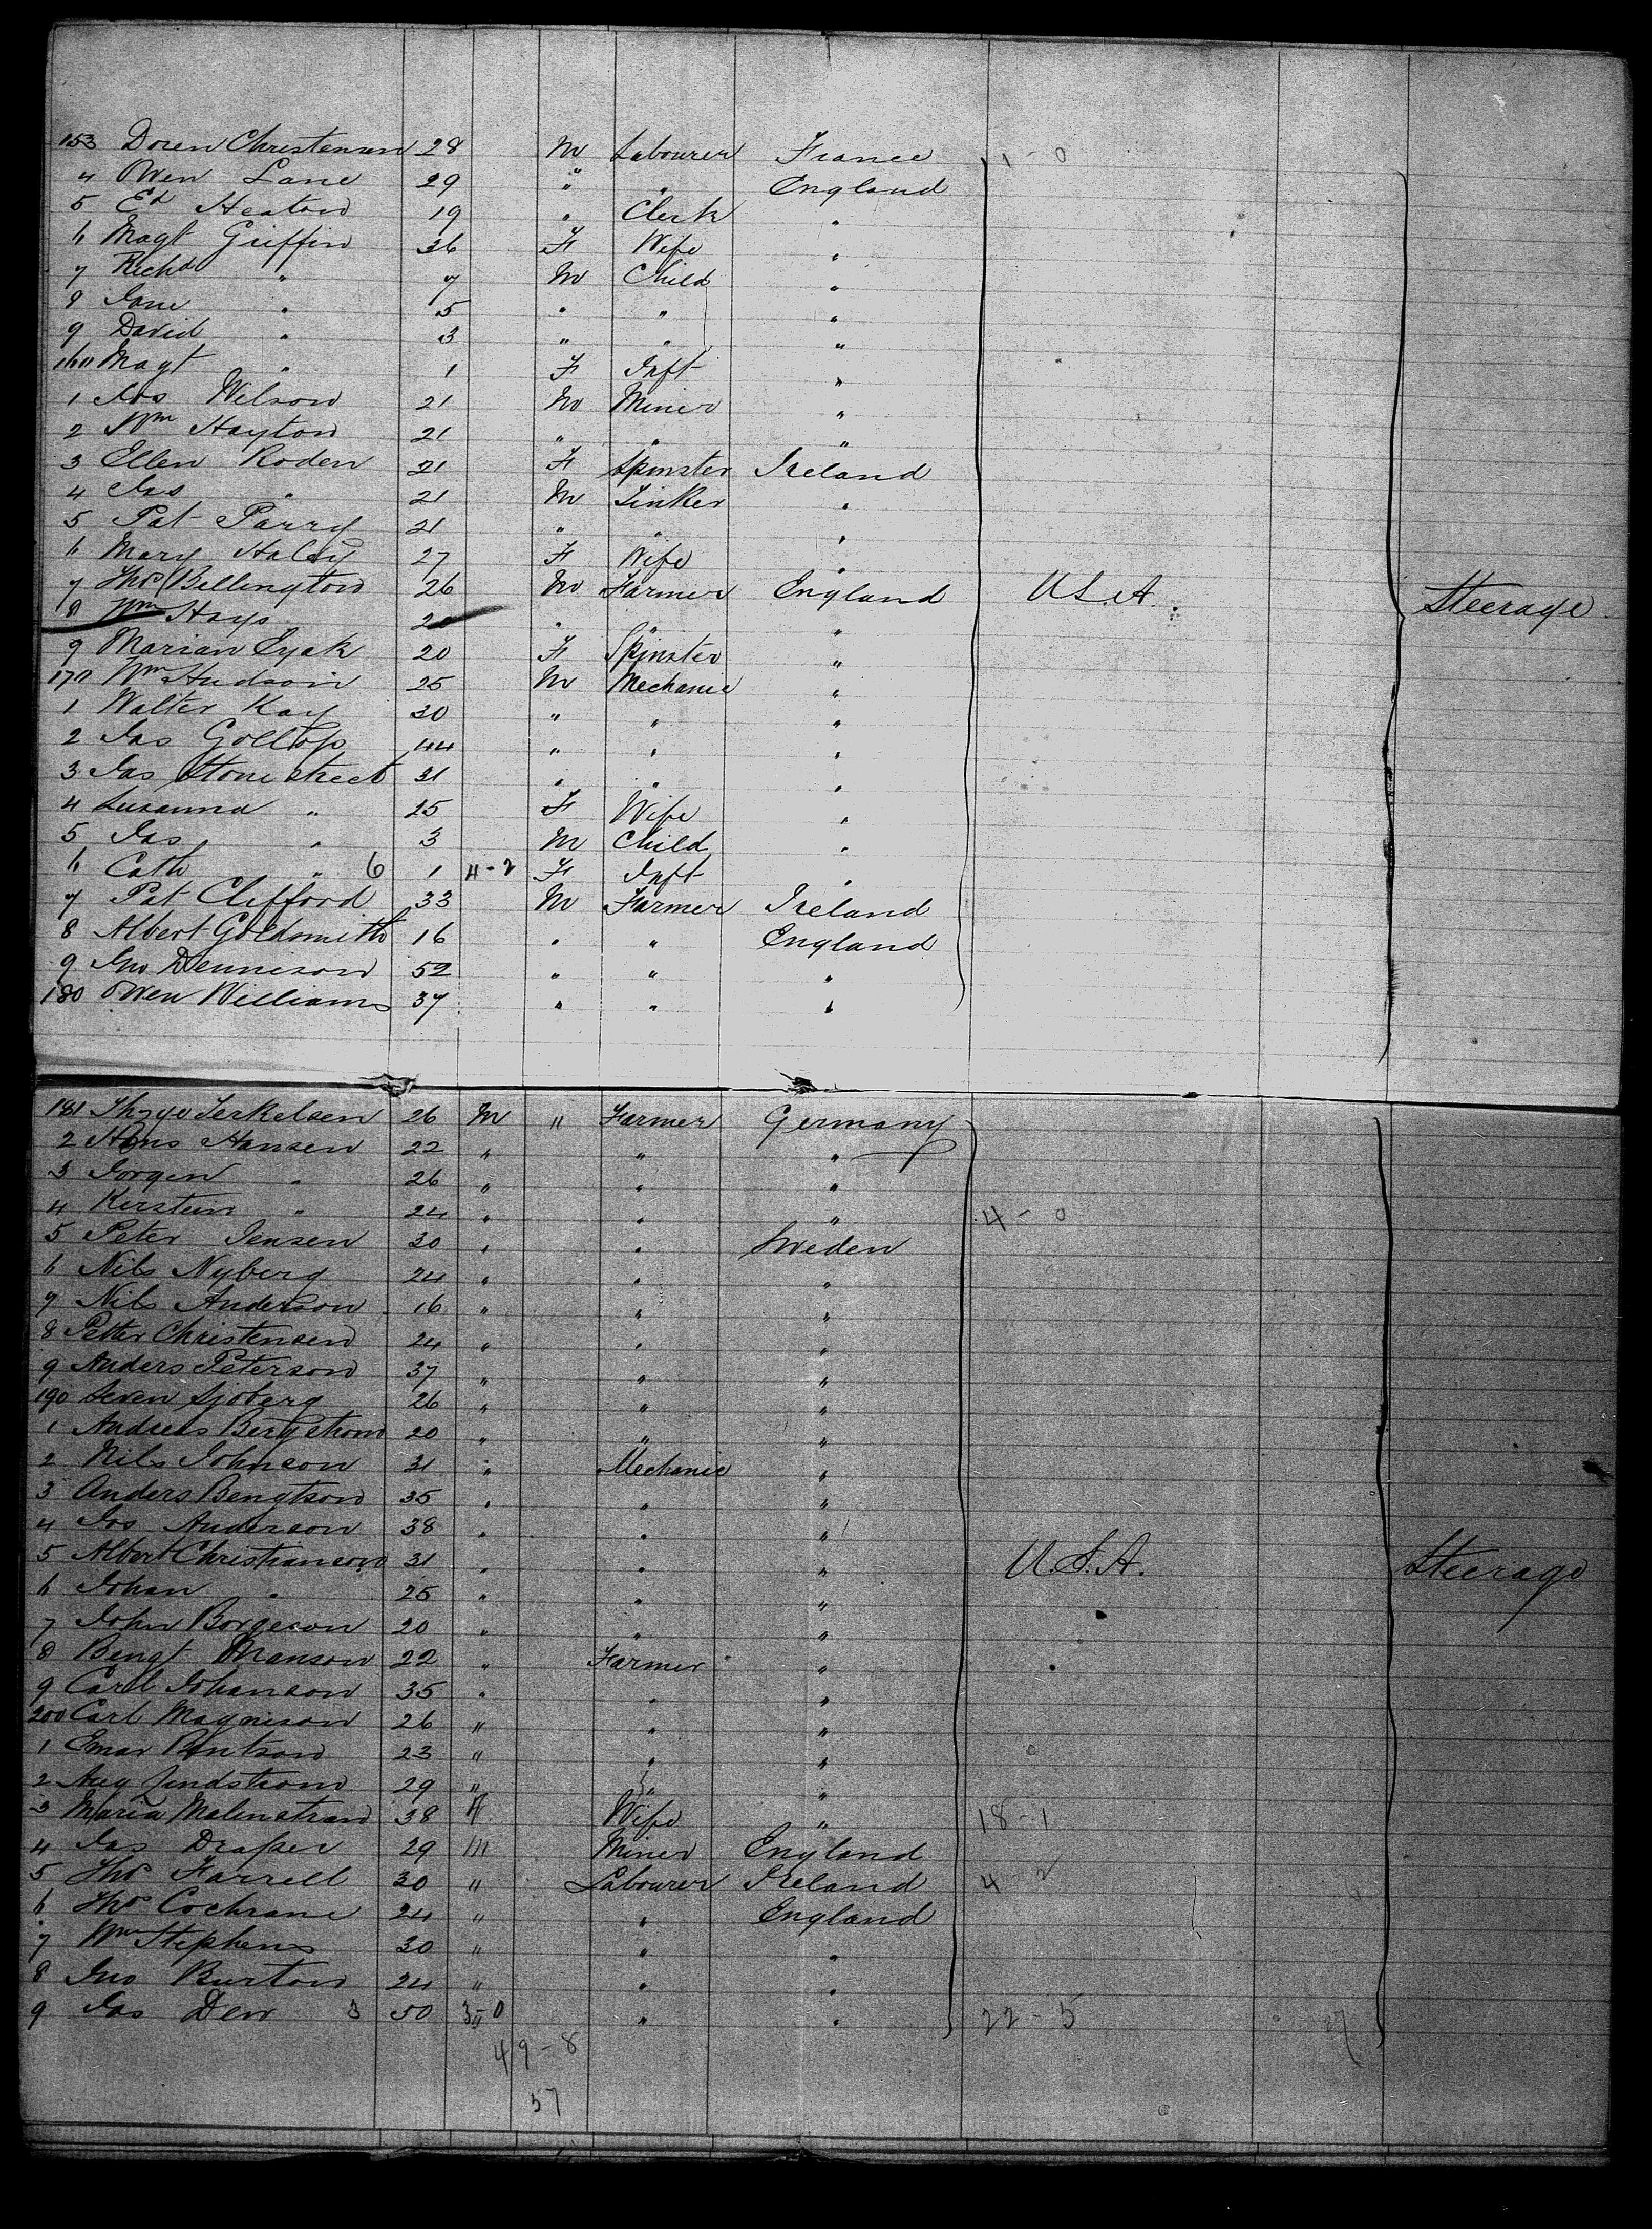 153 Doren Christensen 28 M Labourer France 1-0
4 Owen Lane 29 " " England
5 Ed Heaton 19 " Clerk "
6 Magt Griffin 36 F Wife "
7 Richd " 7 M Child "
8 Jane " 5 " " "
9 David " 3 " " "
160 Magt " 1 F Inft "
1 Jos Wilson 21 M Miner "
2 Wm Hayton 21 " " "
3 Ellen Roden 21 F Spinster Ireland
4 Jas " 21 M Tinker "
5 Pat Parry 21 " " "
6 Mary Haley 27 F Wife "
7 Thos Billington 26 M Farmer England U.S.A. Steerage
8 Wm Hays 20 " " "
9 Marian Eyak 20 F Spinster "
170 Wm Hudson 25 M Mechanic "
1 Walter Kay 30 " " "
2 Jas Gollop 44 " " "
3 Jas Stonestreet 31 " " "
4 Susanna " 25 F Wife "
5 Jas " 3 M Child "
6 Cath " 6 1 4-2 F Inft "
7 Pat Clifford 33 M Farmer Ireland
8 Albert Goldsmith 16 " " England
9 Jno Dennison 52 " " "
180 Owen Williams 37 " " "
181 Terkelsen 26 M " Farmer Germany
2 Hans Hansen 22 " " "
3 Jorgen " 26 " " "
4 Kerstein " 24 " " " 4-0
5 Peter Jensen 30 " " Sweden
6 Nils Nyberg 24 " " "
7 Nils Anderson 16 " " "
8 Petter Christensen 24 " " "
9 Anders Peterson 37 " " "
190 Seven Sjoberg 26 " " "
1 Andreas Bergstrom 20 " " "
2 Nils Johnson 31 " Mechanic "
3 Anders Bengtson 35 " " "
4 Jos Anderson 38 " " "
5 Albert Christianson 31 " " " U.S.A. Steerage
6 Johan " 25 " " "
7 John Borgeson 20 " " "
8 Bengt Manson 22 " Farmer "
9 Carl Johanson 35 " " "
200 Carl Magnison 26 " " "
1 Emar 23 " " "
2 Aug Lindstrom 29 " " "
3 Maria Malmstrand 38 F Wife " 18-1
4 Jas Draper 29 M Miner England
5 Thos Farrell 30 " Labourer Ireland 4-2
6 Thos Cochrane 24 " " England
7 Wm Stephens 30 " " "
8 Jno Burton 24 " " "
9 Jas Dew 3 50 3-0 " " " 22-5
49-8
57